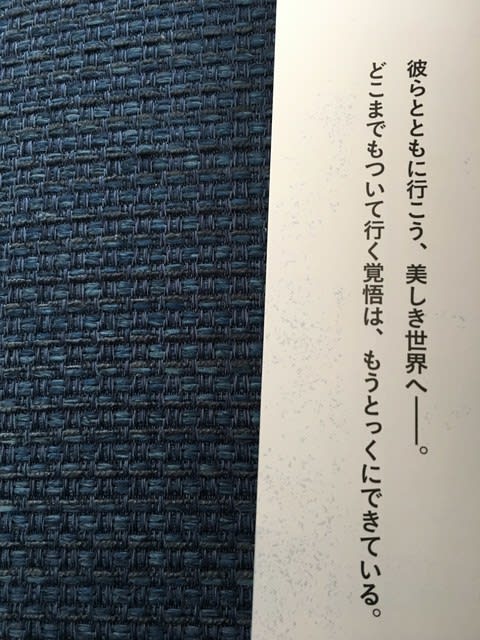 彼らとともに行こう、美しき世界へ――。
どこまでもついて行く覚悟は、もうとっくにできている。